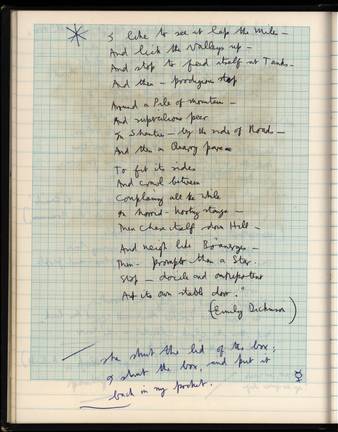 I like to see it lap the Miles —
And lick the Valleys up —
And stop to feed itself at Tanks —
And then — prodigious step
Around a Pile of mountains —
And supercilious peer
In Shanties — by the side of Roads —
And then a Quarry pare
To fit its sides
And crawl between
Complaining all the while
In horrid - hooting stanza —
Then chase itself down Hill —
And neigh like Boanerges —
Then - prompter than a Star.
Stop — docile and omnipotent
At its own stable door."
(Emily Dickinson)
shut the lid of the box;
I shut the box, and put it
back in my pocket.